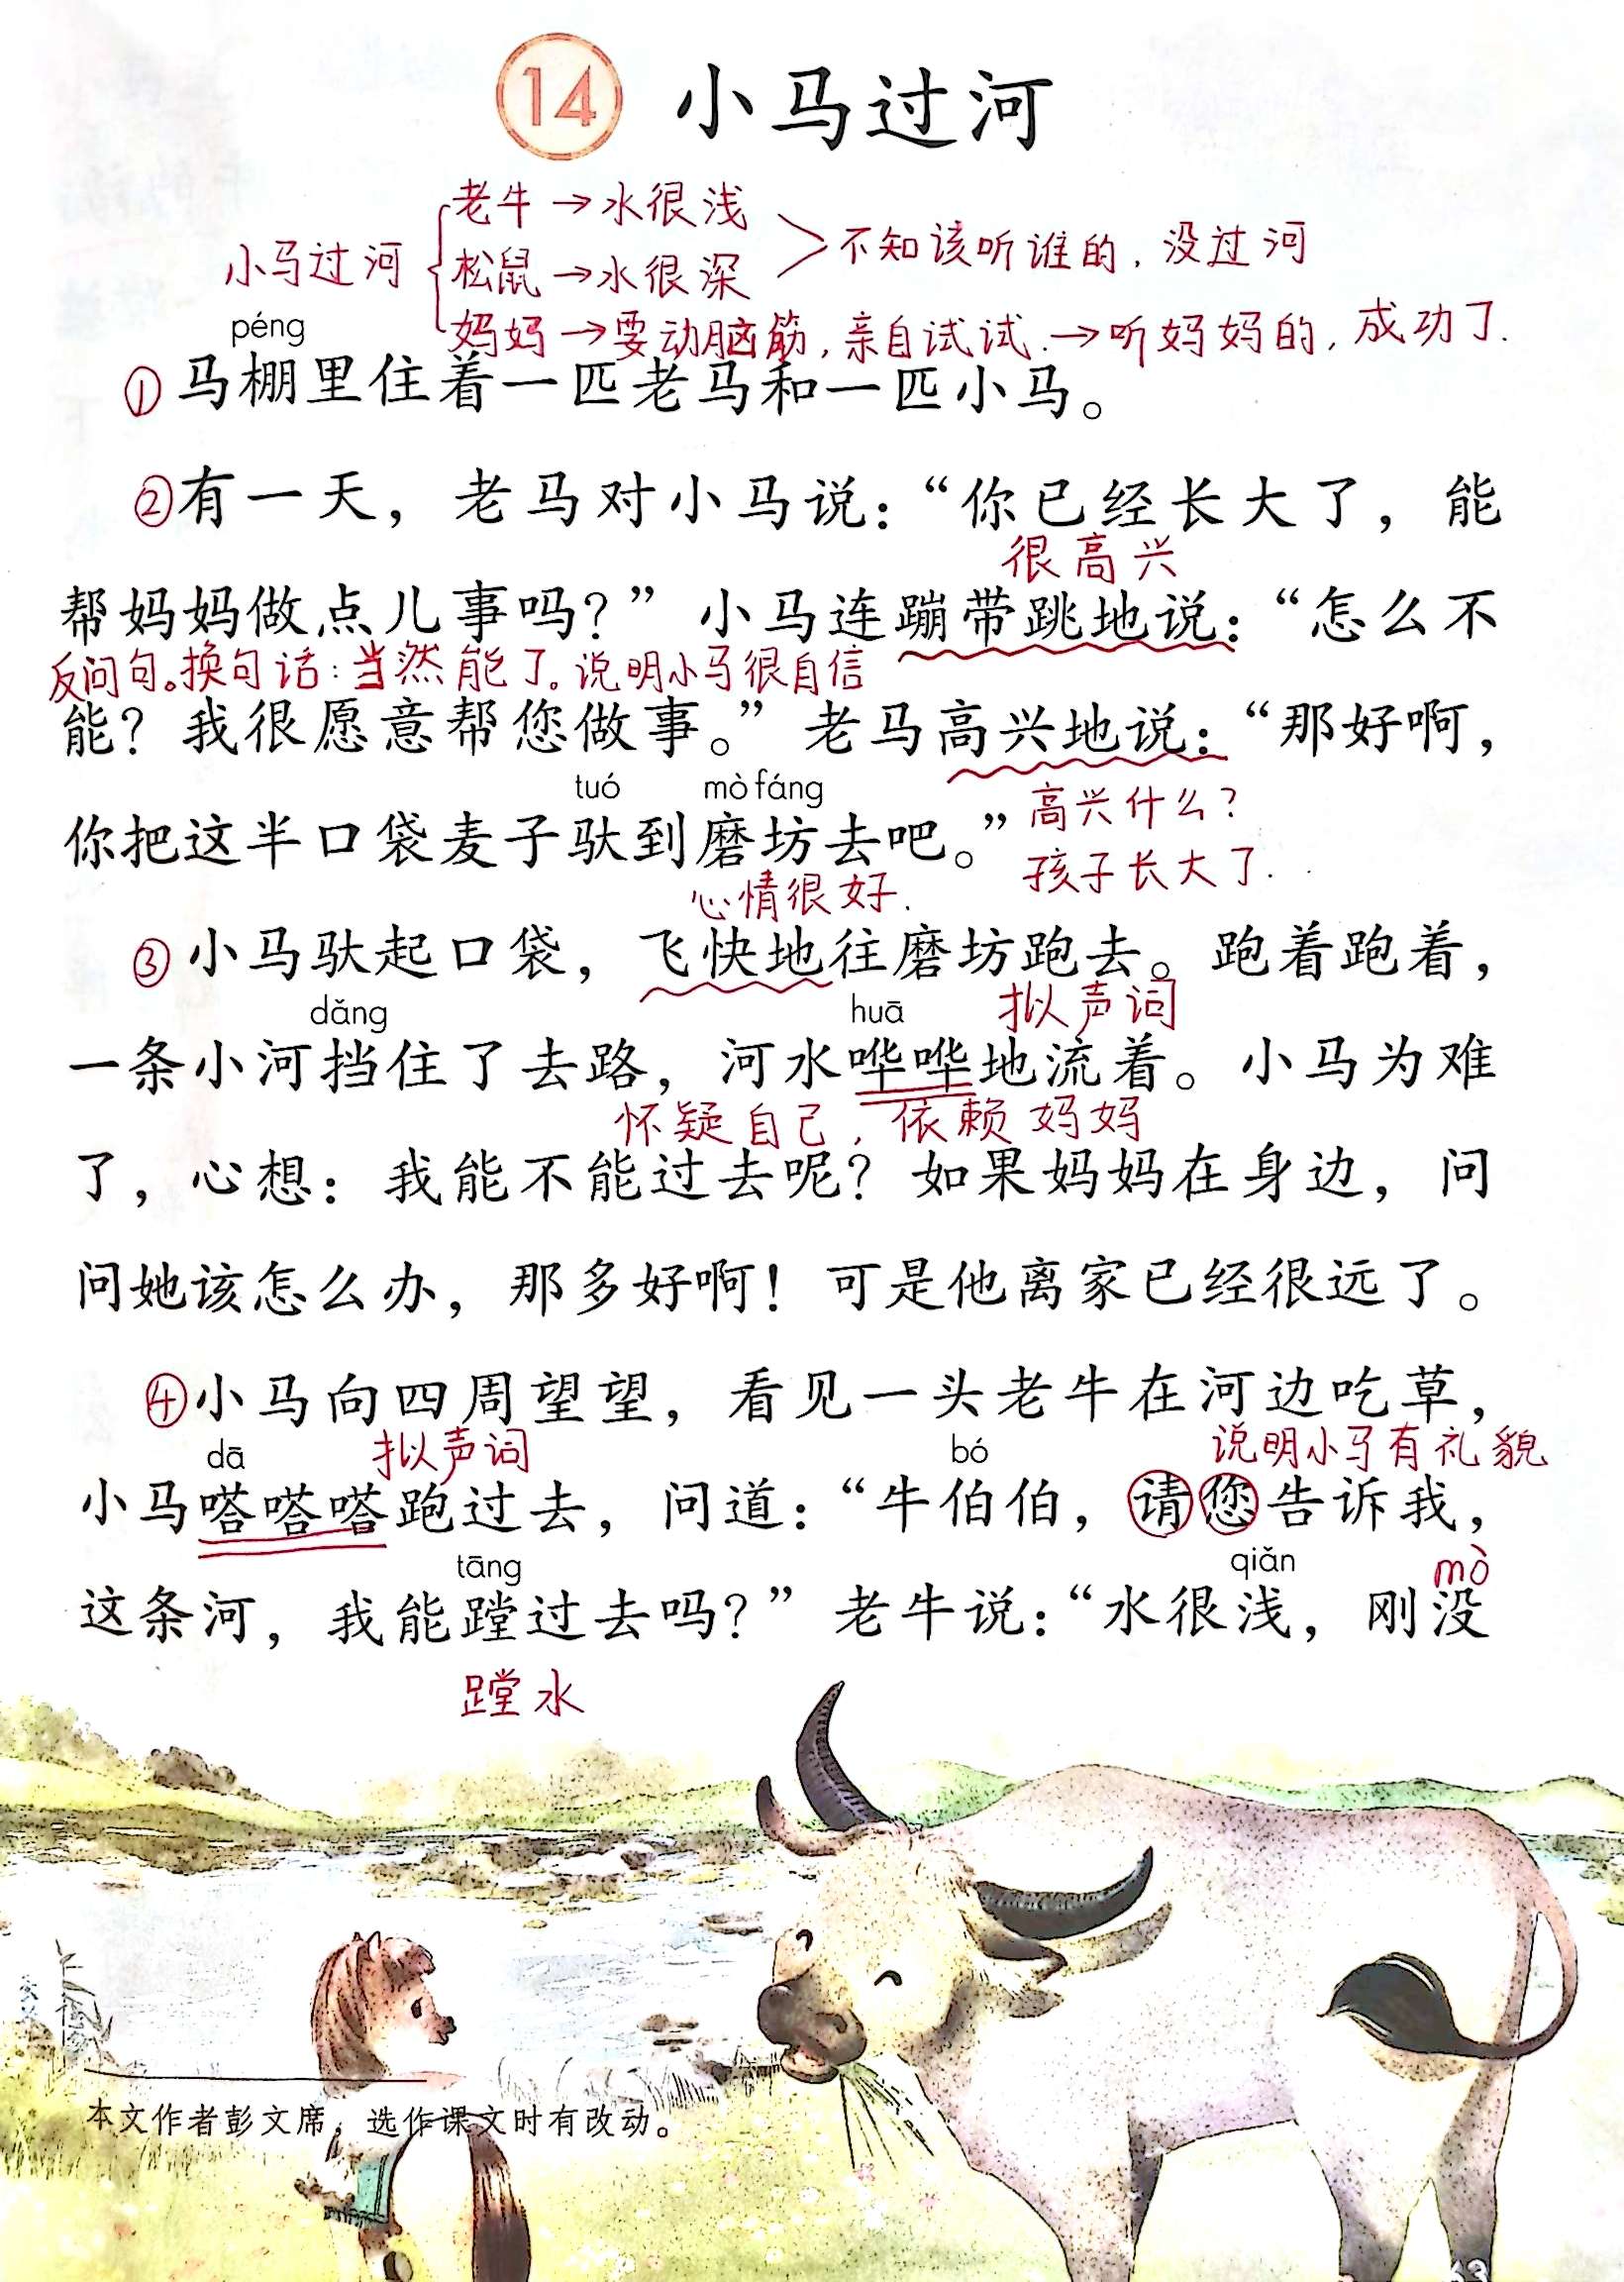 14 小马过河
老牌→水很浅
小马过河 松鼠→水很深 不知该听谁的，没过河
妈妈→要动脑筋，亲自试试.→听妈妈的，成功了.
péng
①马棚里住着一匹老马和一匹小马。
②有一天，老马对小马说：“你已经长大了，能
很高兴
帮妈妈做点儿事吗？”小马连蹦带跳地说：“怎么不
反问句。换句话：当然能了。说明小马很自信
能？我很愿意帮您做事。”老马高兴地说：“那好啊，
tuó mò fáng
高兴什么？
你把这半口袋麦子驮到磨坊去吧。”
孩子长大了.
心情很好.
③小马驮起口袋，飞快地往磨坊跑去。跑着跑着，
dǎng huā 拟声词
一条小河挡住了去路，河水哗哗地流着。小马为难
怀疑自己，依赖妈妈
了，心想：我能不能过去呢？如果妈妈在身边，问
问她该怎么办，那多好啊！可是他离家已经很远了。
④小马向四周望望，看见一头老牛在河边吃草，
dā 拟声词 bó 说明小马有礼貌
小马嗒嗒嗒跑过去，问道：“牛伯伯，请您告诉我，
tāng qiǎn mò
这条河，我能蹚过去吗？”老牛说：“水很浅，刚没
蹚水
本文作者彭文席，选作课文时有改动。
63